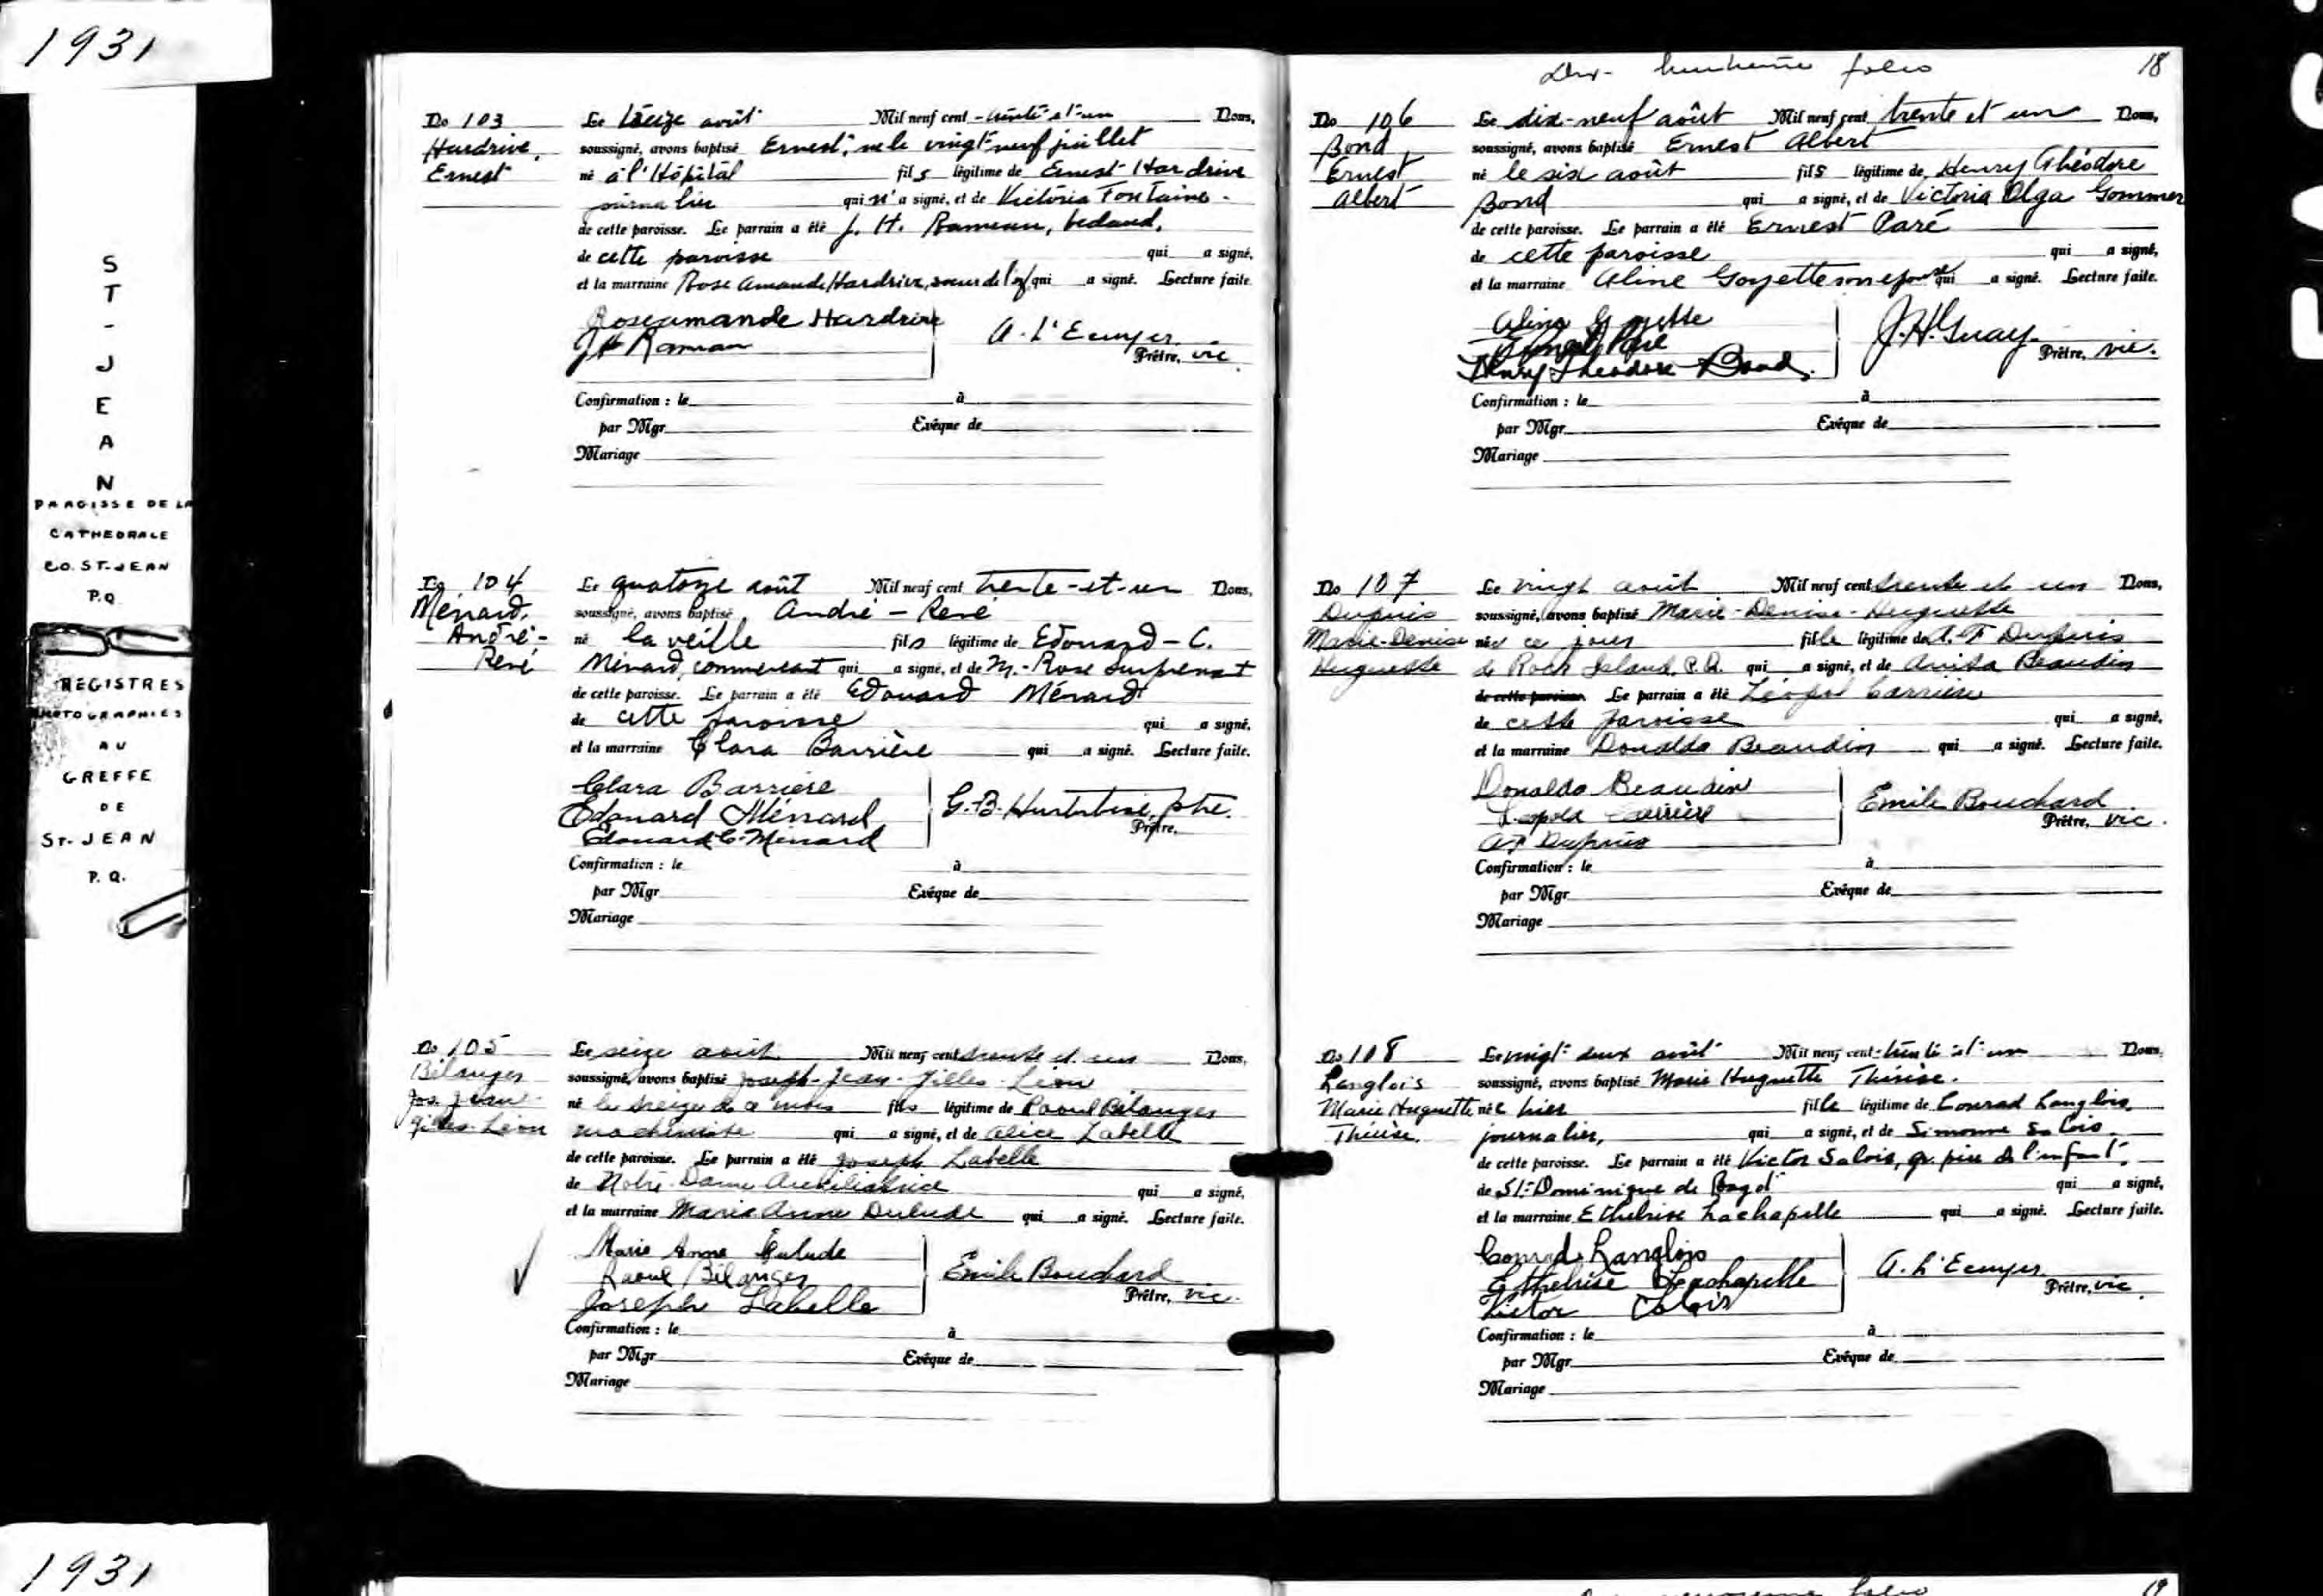 1931
ST-JEAN
PAROISSE DE LA
CATHEDRALE
CO. ST-JEAN
P.Q.
REGISTRES
PHOTOGRAPHIES
AU
GREFFE
DE
ST-JEAN
P.Q.
No 103
Hardrive,
Ernest
Le treize août Mil neuf cent - trente et un Nous,
soussigné, avons baptisé Ernest, né le vingt-neuf juillet
né à l'Hôpital fils légitime de Ernest Hardrive
journalier qui n'a signé, et de Victoria Fontaine.
de cette paroisse. Le parrain a été J. H. Rameau, bedeaud,
de cette paroisse qui a signé,
et la marraine Rose Amande Hardrive, soeur de l'enf qui a signé. Lecture faite.
Roseamande Hardrive
JH Rameau
A. L'Ecuyer
Prêtre, vic.
Confirmation : le à
par Mgr Evêque de
Mariage
No 104
Ménard,
André-
René
Le quatorze août Mil neuf cent trente-et-un Nous,
soussigné, avons baptisé André - René
né la veille fils légitime de Edouard - C.
Ménard, commercant qui a signé, et de M.-Rose Surprenant
de cette paroisse. Le parrain a été Edouard Ménard
de cette paroisse qui a signé,
et la marraine Clara Barrière qui a signé. Lecture faite.
Clara Barriere
Edouard Ménard
Edouard C. Menard
G.-B. Hurtubise, ptre.
Prêtre,
Confirmation : le à
par Mgr Evêque de
Mariage
No 105
Bélanger
Jos. Jean-
Gilles-Léon
Le seize août Mil neuf cent trente et un Nous,
soussigné, avons baptisé Joseph-Jean-Gilles-Léon
né le treize de ce mois fils légitime de Raoul Bélanger
machiniste qui a signé, et de Alice Labelle
de cette paroisse. Le parrain a été Joseph Labelle
de Notre-Dame Auxiliatrice qui a signé,
et la marraine Marie Anne Dulude qui a signé. Lecture faite.
Marie Anne Dulude
Raoul Bélanger
Joseph Labelle
Emile Bouchard
Prêtre, vic.
Confirmation : le à
par Mgr Evêque de
Mariage
Dix-huitième folio 18
No 106
Bond
Ernest
Albert
Le dix-neuf août Mil neuf cent trente et un Nous,
soussigné, avons baptisé Ernest Albert
né le six août fils légitime de Henry Théodore
Bond qui a signé, et de Victoria Olga Gommer
de cette paroisse. Le parrain a été Ernest Paré
de cette paroisse qui a signé,
et la marraine Aline Goyette son épouse qui a signé. Lecture faite.
Aline Goyette
Ernest Paré
Henry Theodore Bond.
J.H. Guay
Prêtre, vic.
Confirmation : le à
par Mgr Evêque de
Mariage
No 107
Dupuis
Marie-Denise
Huguette
Le vingt août Mil neuf cent trente et un Nous,
soussigné, avons baptisé Marie-Denise-Huguette
née ce jour fille légitime de A. F. Dupuis
de Rock Island, P.Q. qui a signé, et de Anita Beaudin
de cette paroisse. Le parrain a été Léopol Carrière
de cette paroisse qui a signé,
et la marraine Donalda Beaudin qui a signé. Lecture faite.
Donalda Beaudin
Léopold Carrière
A.F. Dupuis
Emile Bouchard
Prêtre, vic.
Confirmation : le à
par Mgr Evêque de
Mariage
No 108
Langlois
Marie Huguette
Thérèse.
Le vingt-deux août Mil neuf cent-trente et un Nous,
soussigné, avons baptisé Marie Huguette Thérèse.
née hier fille légitime de Conrad Langlois,
journalier, qui a signé, et de Simonne Salois,
de cette paroisse. Le parrain a été Victor Salois, gr. père de l'enfant,
de St-Dominique de Bagot qui a signé,
et la marraine Ethelrise Lachapelle qui a signé. Lecture faite.
Conrad Langlois
Ethelrise Lachapelle
Victor Salois
A. L'Ecuyer
Prêtre, vic.
Confirmation : le à
par Mgr Evêque de
Mariage
1931
folio 19